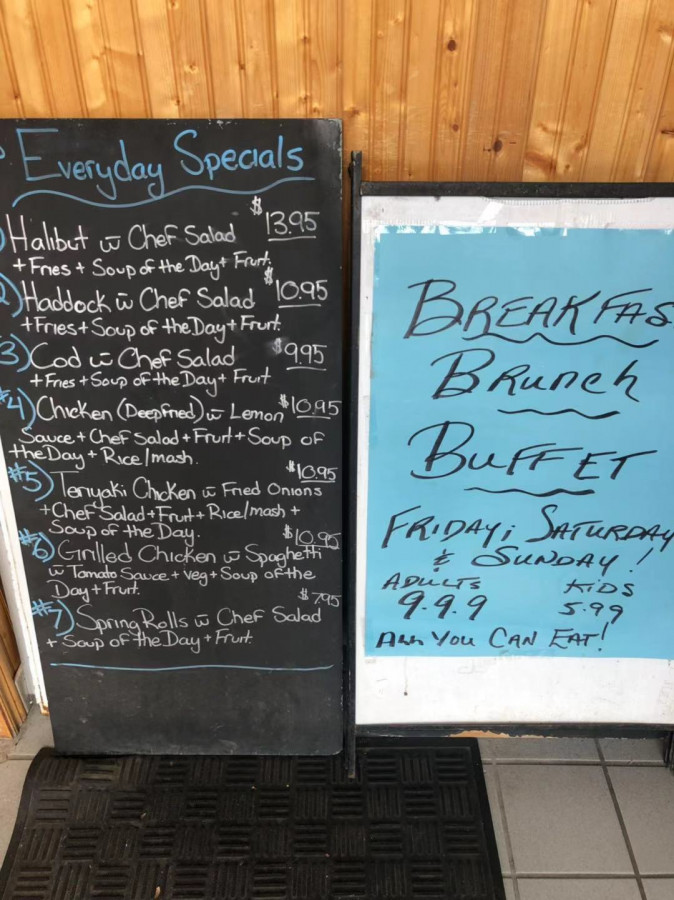 Everyday Specials
Halibut w̄ Chef Salad $13.95
+ Fries + Soup of the Day + Fruit.
2) Haddock w̄ Chef Salad $10.95
+ Fries + Soup of the Day + Fruit.
3) Cod w̄ Chef Salad $9.95
+ Fries + Soup of the Day + Fruit
#4) Chicken (Deepfried) w̄ Lemon $10.95
Sauce + Chef Salad + Fruit + Soup of
the Day + Rice/mash.
#5) Teriyaki Chicken w̄ Fried Onions $10.95
+ Chef Salad + Fruit + Rice/mash +
Soup of the Day.
#6) Grilled Chicken w̄ Spaghetti $10.95
w̄ Tomato Sauce + veg + Soup of the
Day + Fruit.
#7) Spring Rolls w̄ Chef Salad $7.95
+ Soup of the Day + Fruit.
BREAKFAS
BRUNCH
BUFFET
FRIDAY, SATURDAY
& SUNDAY!
ADULTS KIDS
9.99 5.99
ALL YOU CAN EAT!